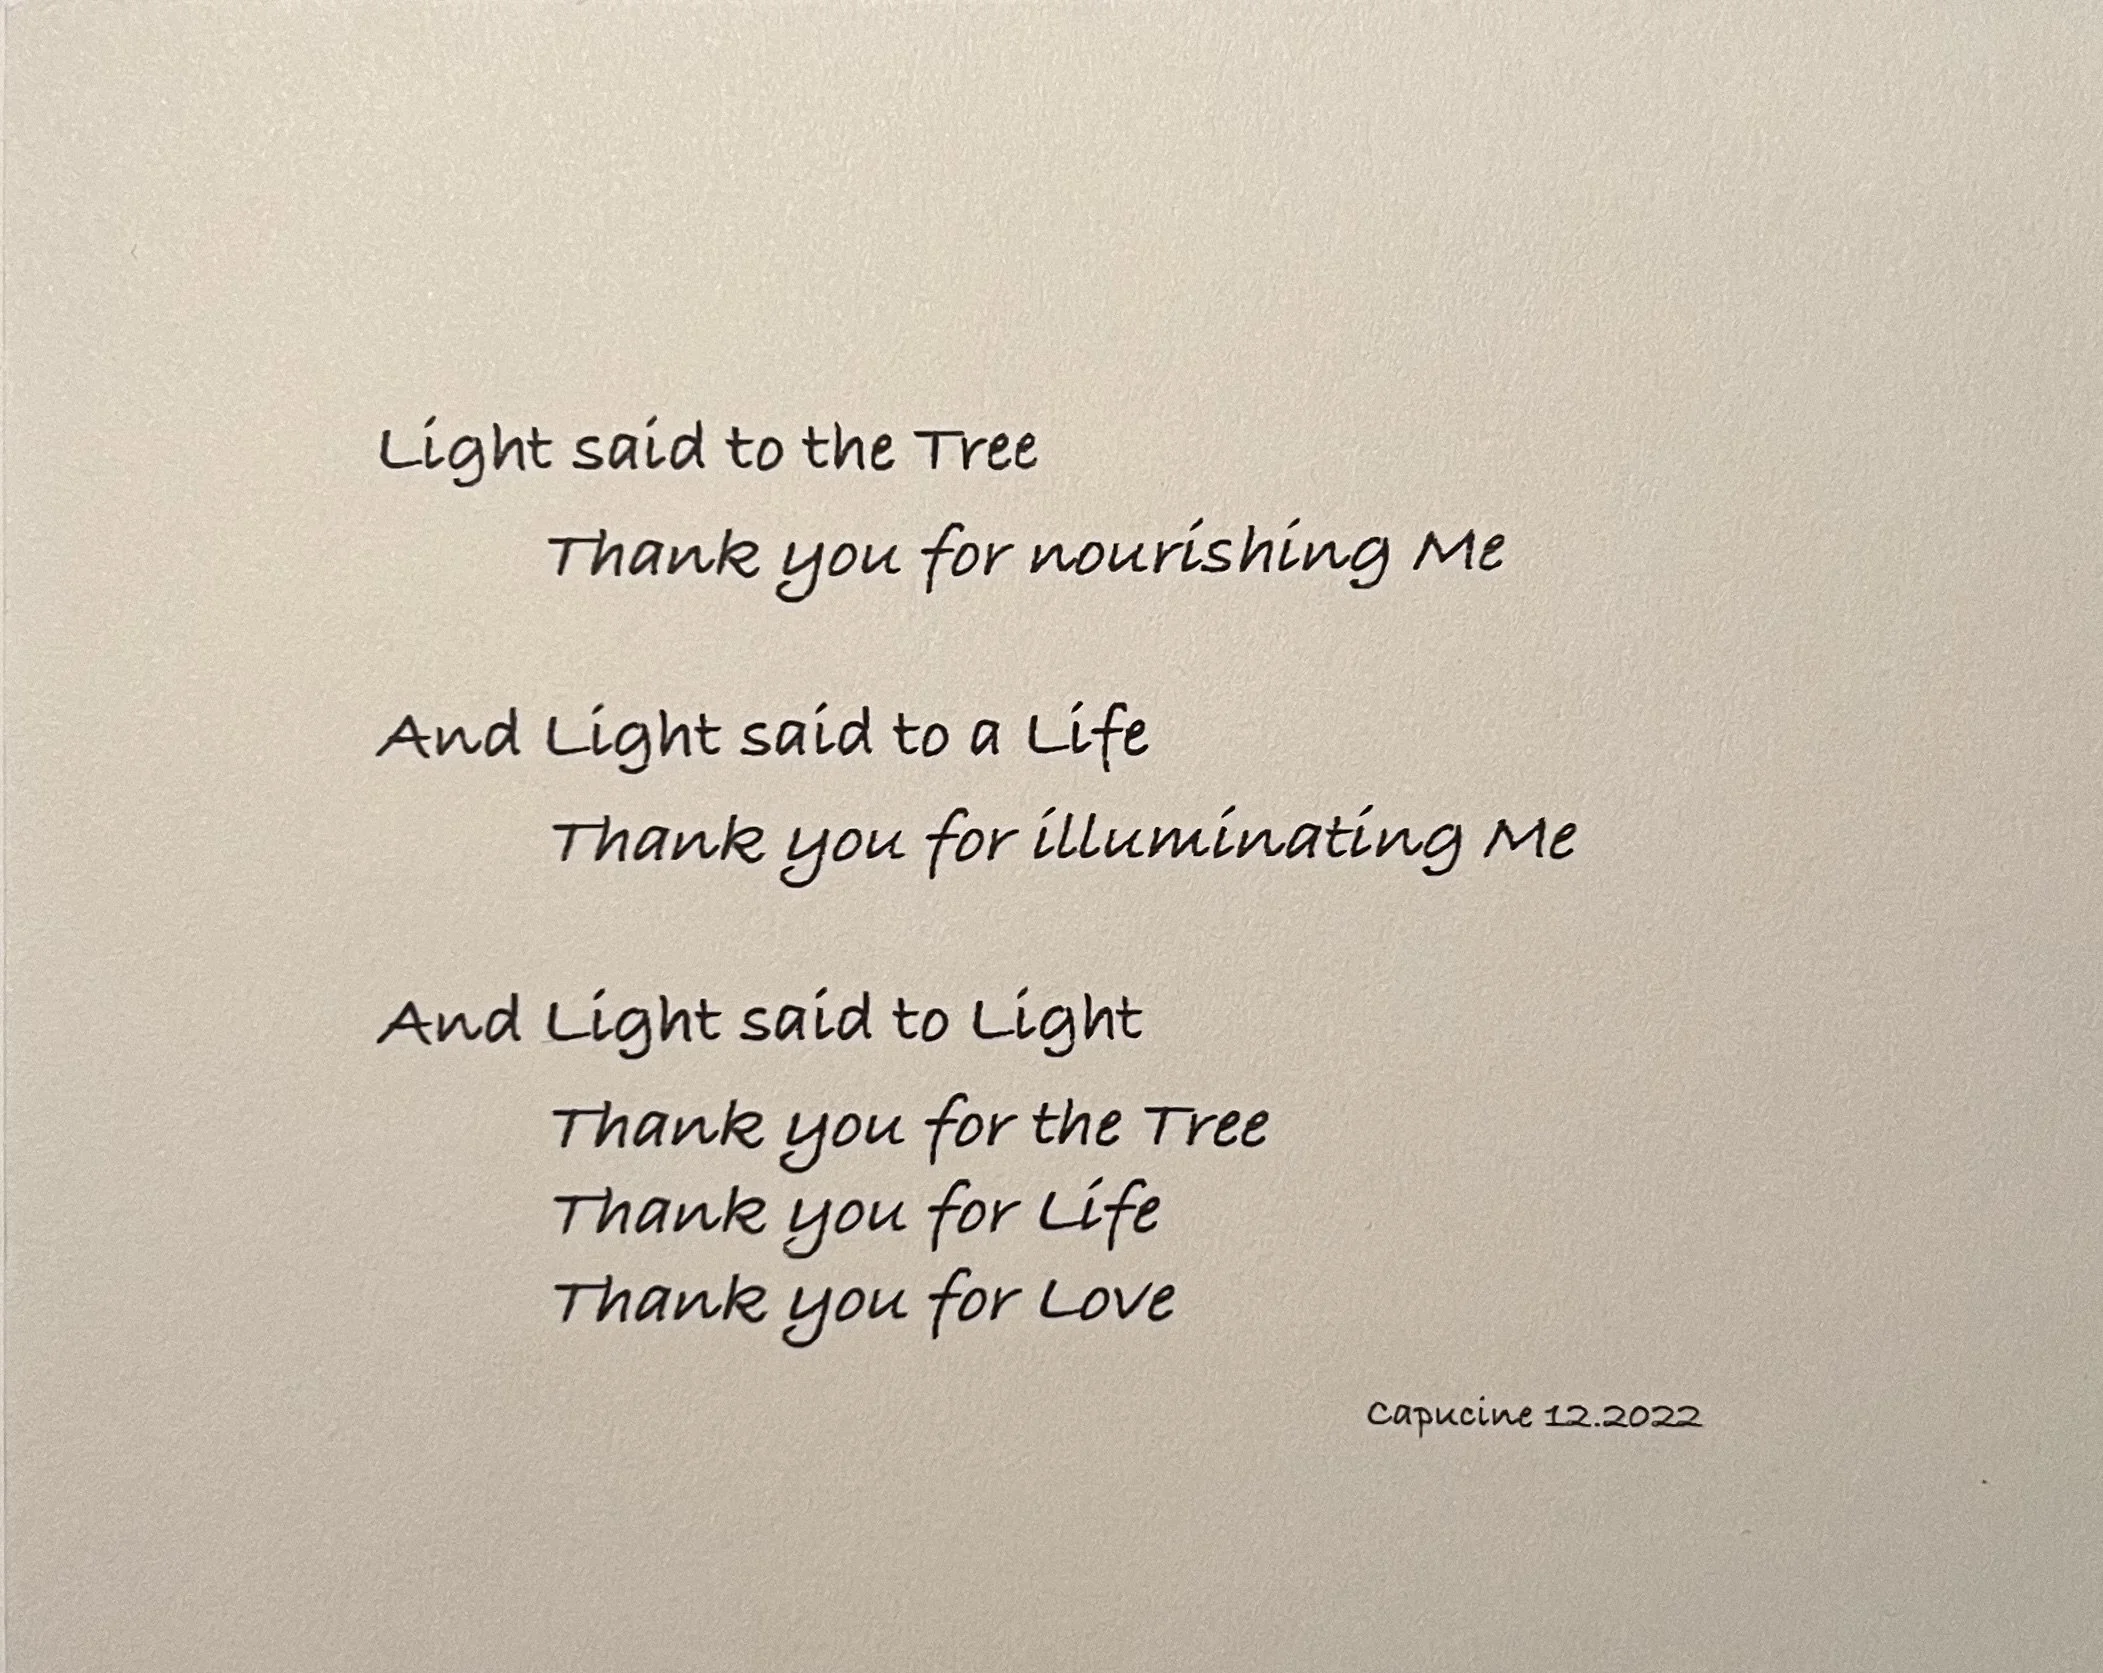 Light said to the Tree
Thank you for nourishing Me
And Light said to a Life
Thank you for illuminating Me
And Light said to Light
Thank you for the Tree
Thank you for Life
Thank you for Love
Capucine 12.2022